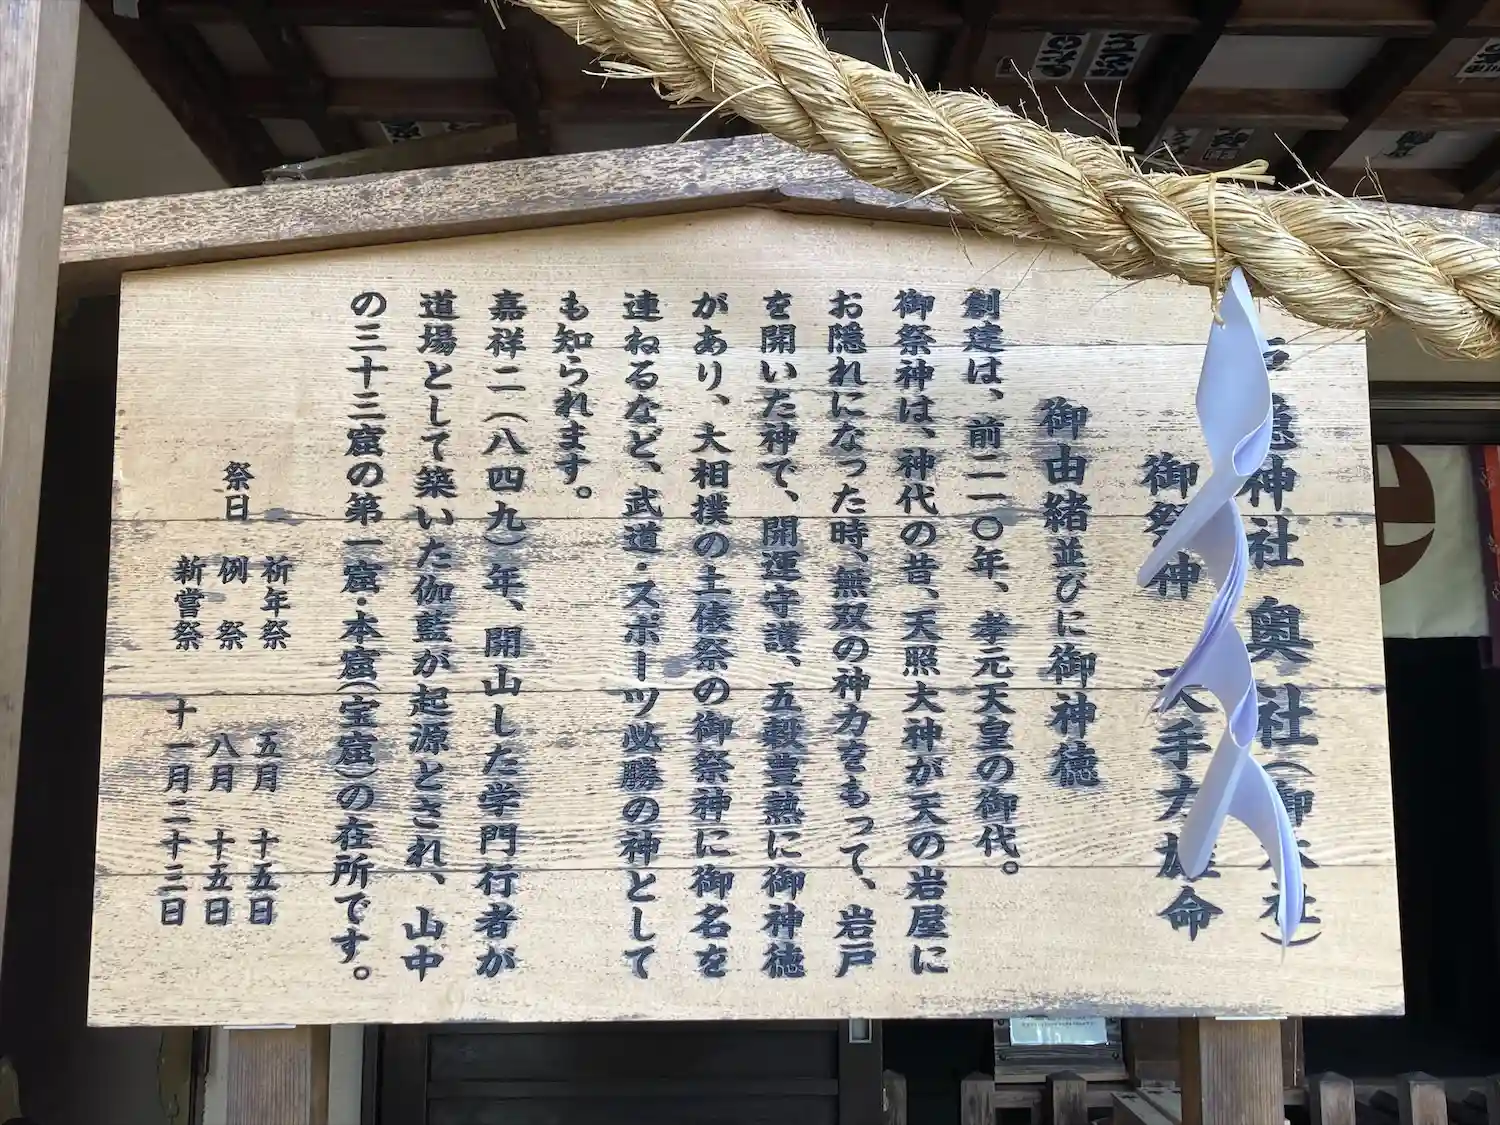 隠神社 奥社(御本社)
御祭神 天手力雄命
御由緒並びに御神徳
創建は、前二一〇年、孝元天皇の御代。
御祭神は、神代の昔、天照大神が天の岩屋に
お隠れになった時、無双の神力をもって、岩戸
を開いた神で、開運守護、五穀豊熟に御神徳
があり、大相撲の土俵祭の御祭神に御名を
連ねるなど、武道・スポーツ必勝の神として
も知られます。
嘉祥二(八四九)年、開山した学門行者が
道場として築いた伽藍が起源とされ、山中
の三十三窟の第一窟・本窟(宝窟)の在所です。
祭日
祈年祭 五月 十五日
例祭 八月 十五日
新嘗祭 十一月二十三日